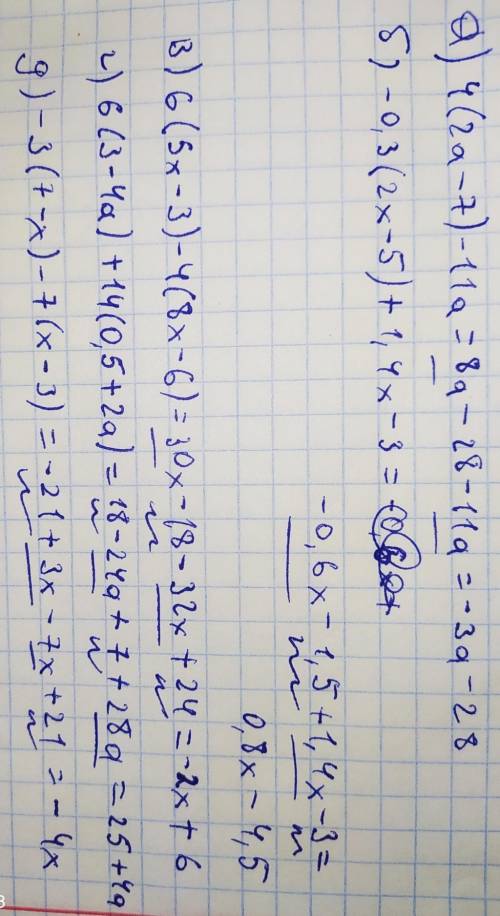 а) 4(2a-7)-11a=8a-28-11a=-3a-28
б) -0,3(2x-5)+1,4x-3=
-0,6x-1,5+1,4x-3=
0,8x-4,5
в) 6(5x-3)-4(8x-6)=30x-18-32x+24=-2x+6
г) 6(3-4a)+14(0,5+2a)=18-24a+7+28a=25+4a
д) -3(7-x)-7(x-3)=-21+3x-7x+21=-4x